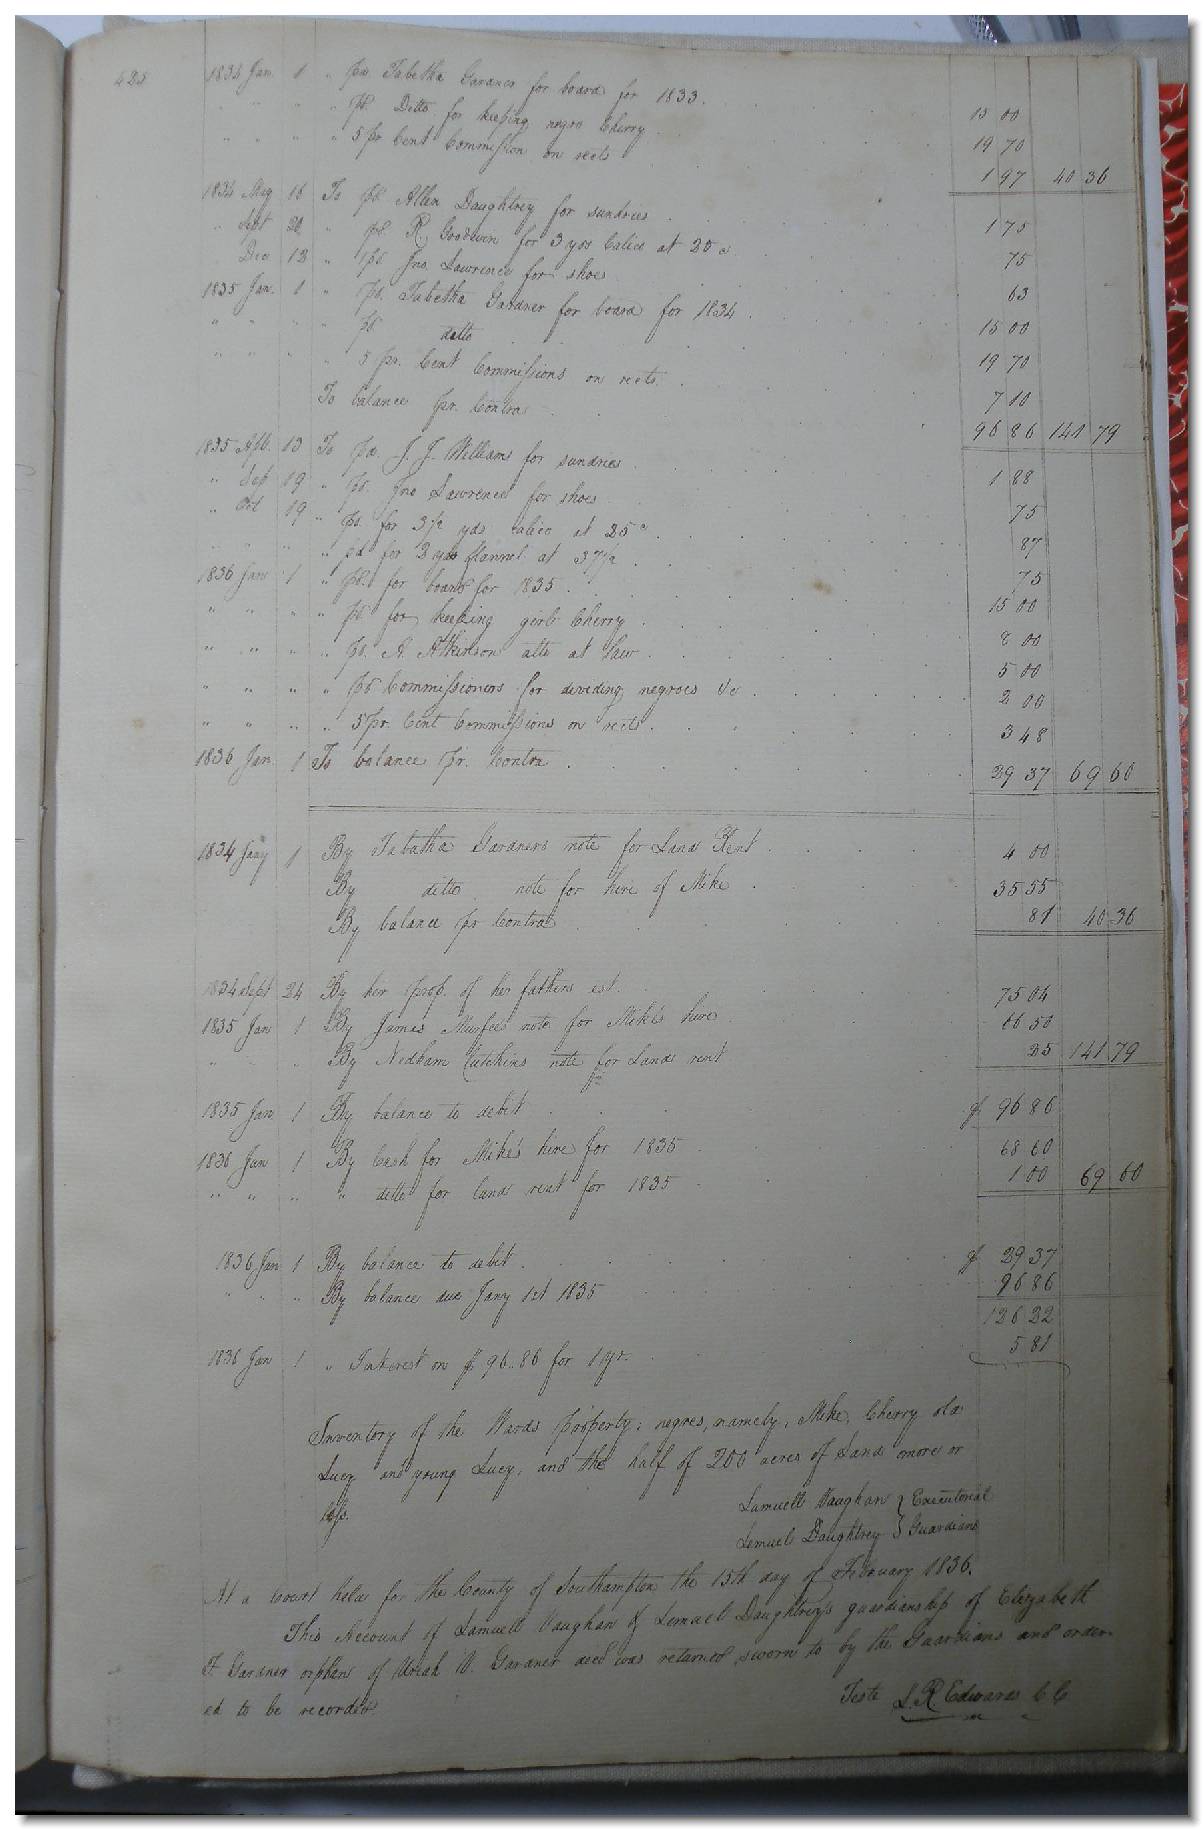 425
1834 Jan 1 " pd Tabetha Gardner for board for 1833 . 15 00
" " " " pd. Ditto for keeping negro Cherry 19 70
" " " " 5 pr Cent Commission on rects 1 97 40 36
1834 Aug 16 To pd Allen Daughtrey for sundries . 1 75
" Sept 20 " pd R. Goodwin for 3 yds Calico at 25 c 75
Dec 12 " pd Jno. Lawrence for shoes 63
1835 Jan. 1 " pd. Tabetha Gardner for board for 1834 . 15 00
" " " " pd ditto 19 70
" " " " 5 pr. Cent Commissions on rects. 7 10
To balance pr. Contra 96 86 141 79
1835 Apl. 13 To pd. J. J. Williams for sundries 1 88
" Sep 19 " pd. Jno Lawrence for shoes 75
" Oct 19 " pd. for 3 1/2 yds calico at 25 c 87
" " " " pd for 2 yds flannel at 37 1/2 . 75
1836 Jan 1 " pd. for board for 1835 . 15 00
" " " " pd for keeping girl Cherry 8 00
" " " " pd. A. Atkinson atto at Law . 5 00
" " " " pd Commissioners for deviding negroes &c . 2 00
" " " " 5 pr. Cent Commissions on rects . 3 48
1836 Jan 1 To balance pr. Contra . 29 37 69 60
1834 Jany 1 By Tabatha Gardners note for Land Rent 4 00
By ditto note for hire of Mike . 35 55
By balance pr Contra 81 40 36
1834 Sept 24 By her prop. of her fathers est. 75 04
1835 Jan 1 By James Murfee's note for Mike's hire 66 50
" " By Nedham Cutchins note for Lands rent 25 141 79
1835 Jan 1 By balance to debit . $ 96 86
1836 Jan 1 By Cash for Mike's hire for 1835 68 60
" " " " ditto for land rent for 1835 1 00 69 60
1836 Jan 1 By balance to debit . $ 29 37
" " " By balance due Jany 1st 1835 96 86
126 22
1836 Jan 1 " Interest on $ 96..86 for 1 yr. 5 81
Inventory of the Wards property; negroes, namely, Mike, Cherry old
Lucy and young Lucy, and the half of 200 acres of Land more or
less.
Samuell Vaughan } Executorial
Lemuel Daughtrey } Guardians
At a court held for the County of Southampton the 15th day of February 1836.
This Account of Samuell Vaughan & Lemuel Daughtrey's guardianship of Elizabeth
F. Gardner orphan of Uriah W. Gardner decd was returned sworn to by the Guardians and order-
ed to be recorded
Teste L. R. Edwards C C